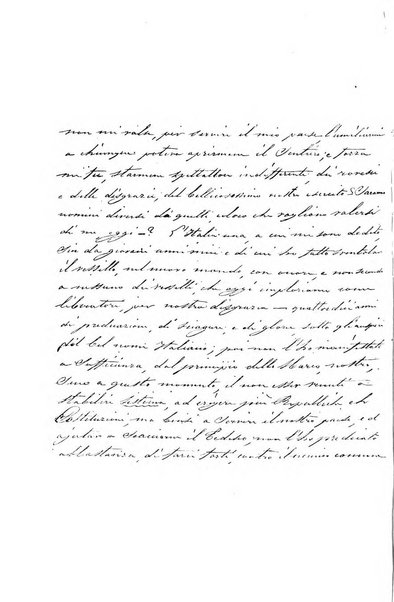 non mi vala, per servire il mio paese l'umiliarmi
a chiunque poteva aprirmene il Sentiero; e forza
mi fu starmene spettatore indifferente dei rovesci
e delle disgrazie, del bellicosissimo nostro esercito E Saranno
uomini diversi da quelli, coloro che vogliono valersi
di me oggi —? L'Italia una a cui mi sono dedicato
Sin da giovani anni miei e di cui son fatto sventolar
il vessillo, nel nuovo mondo, con onore, e non secondo
a nessuno di vessilli che oggi imploriamo come
liberatori, per nostra disgrazia — quattordici anni
di predicazioni, di sciagure, e di glorie sotto gli auspici
del bel nome Italiano; poi non l'ho manifestato
a Sufficienza, dal principio della Marca, nostra,
Sino a questo momento, il non esser venuto a
stabilire sistema, ad erigere più Repubbliche che
Costituzioni, ma bensì a Servire il nostro paese, ed
ajutare a Scacciarne il Tedesco, non l'ho predicato
abbastanza, di farci forti, contro il nemico comune